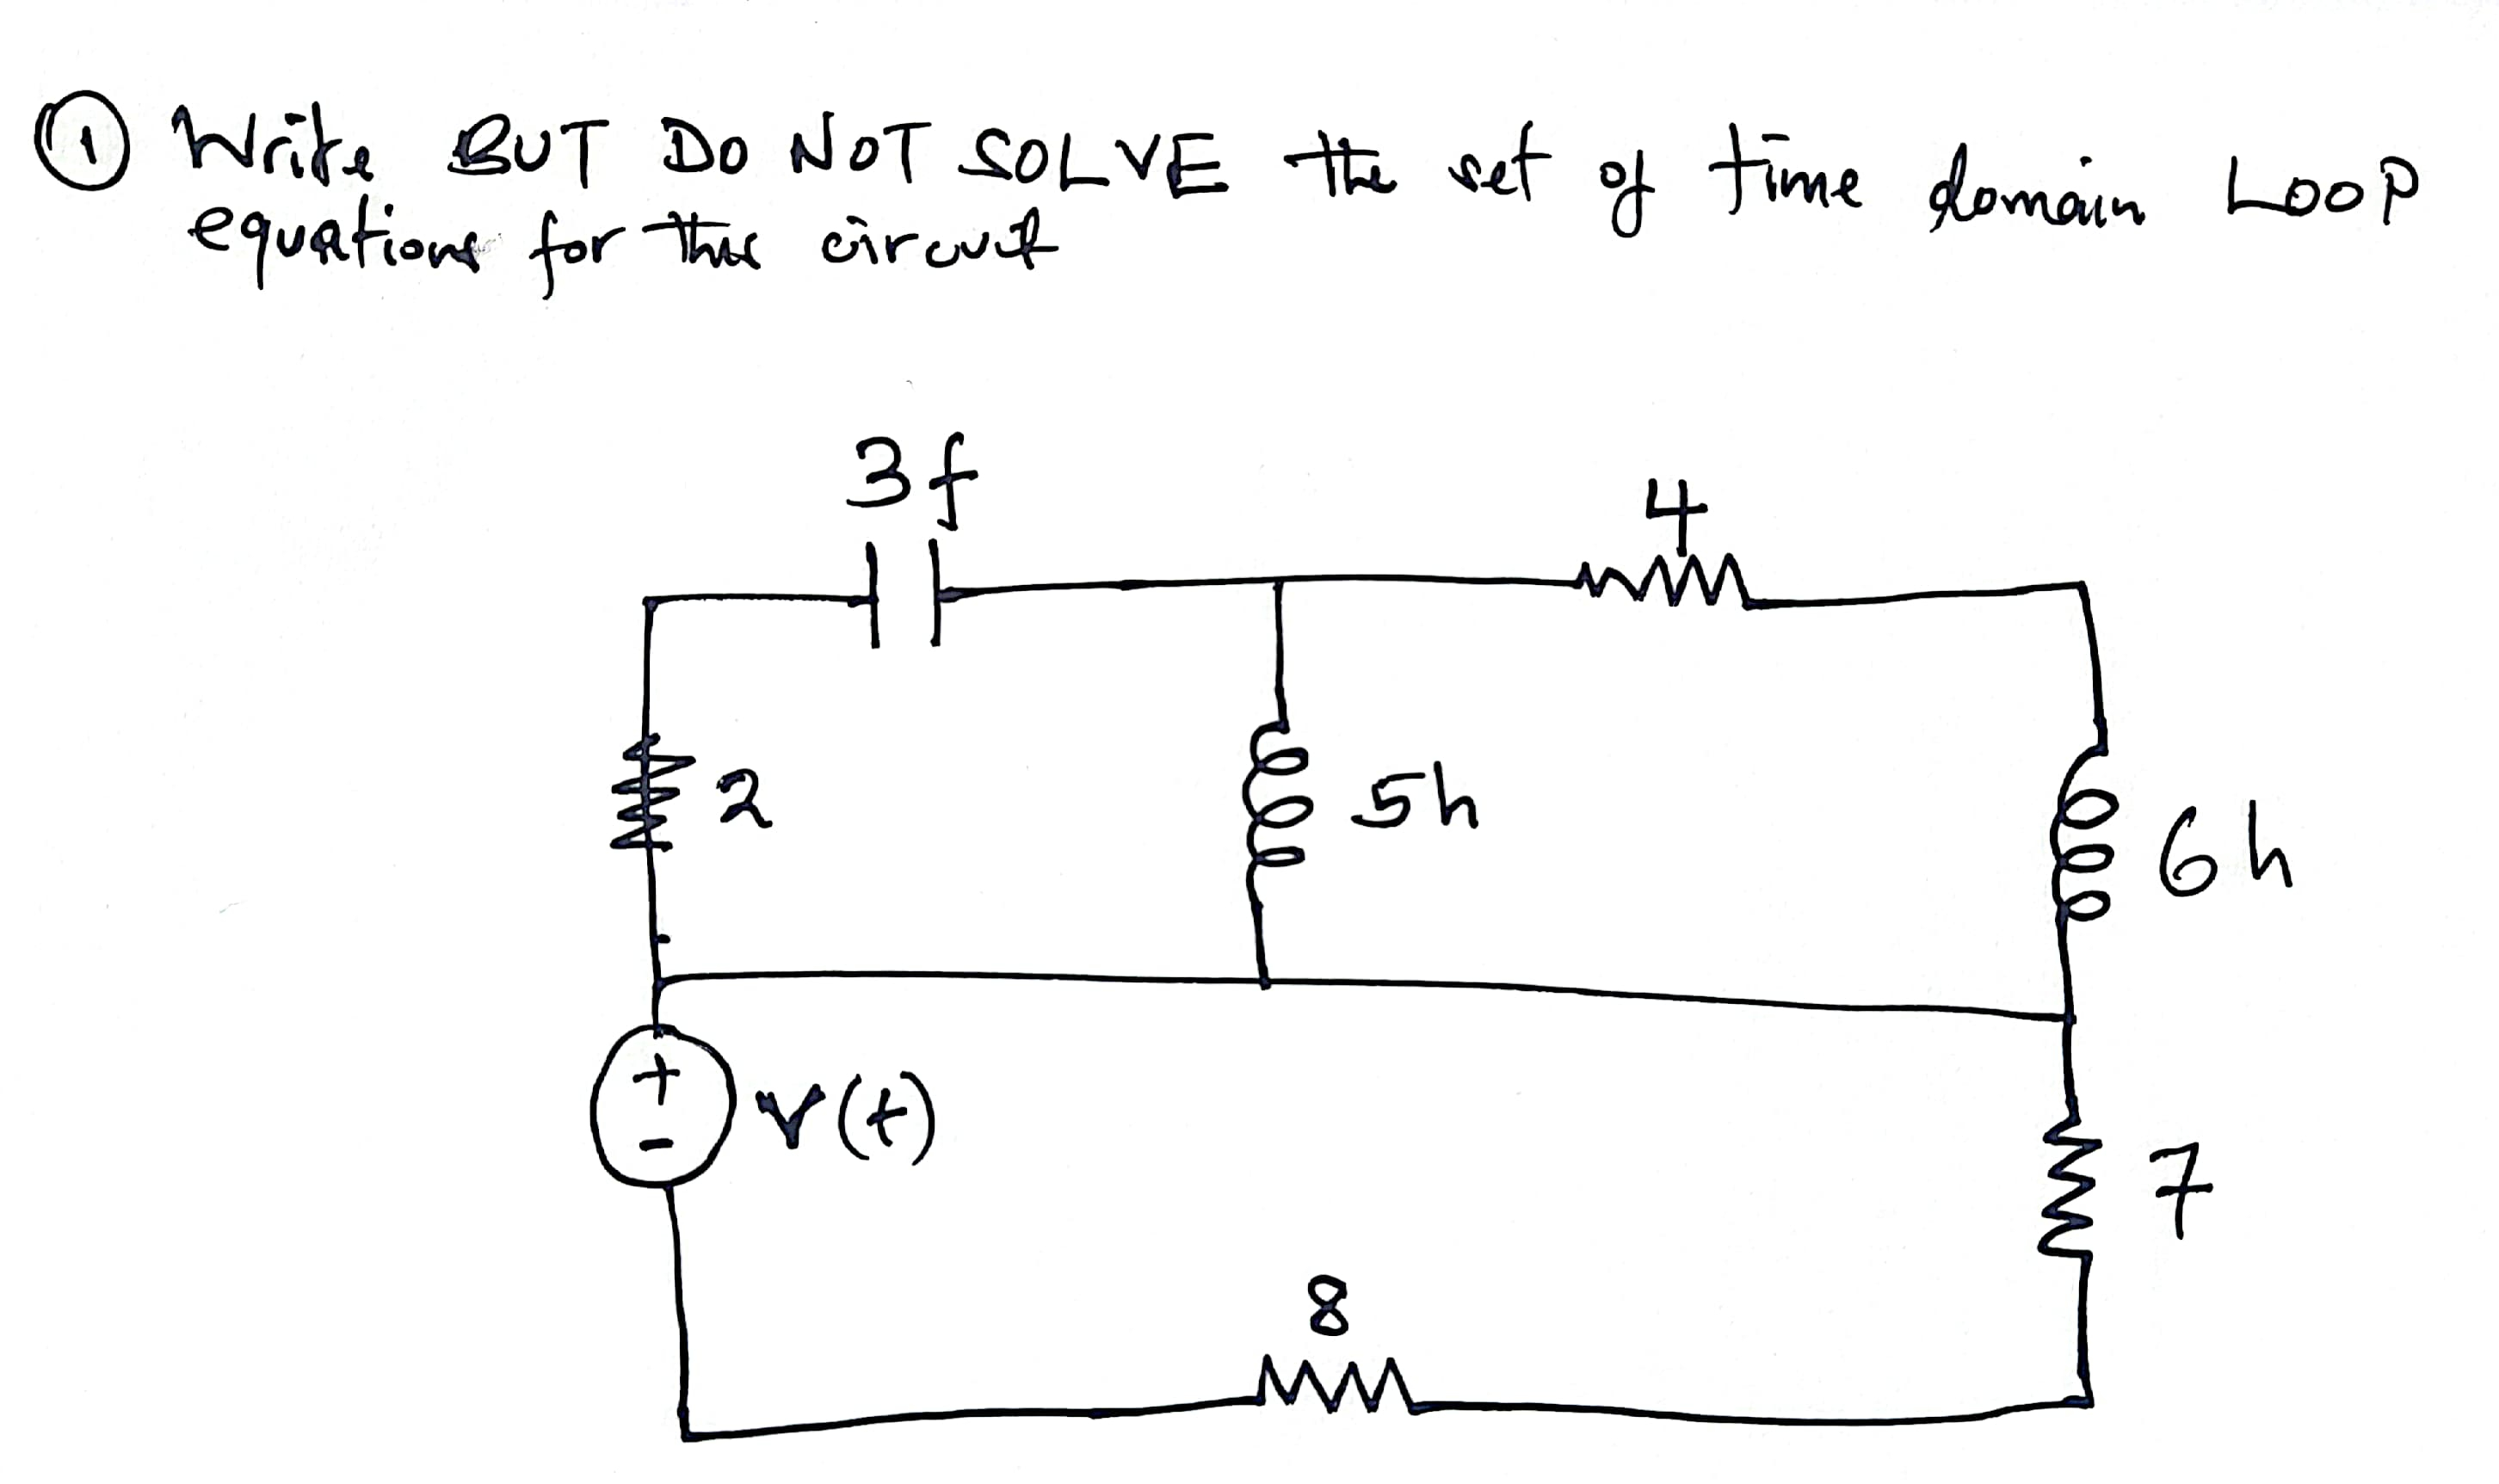 ① Write BUT DO NOT SOLVE the set of time domain LOOP
equations for this circuit
3f
4
2
5h
6h
+
-
v(t)
7
8